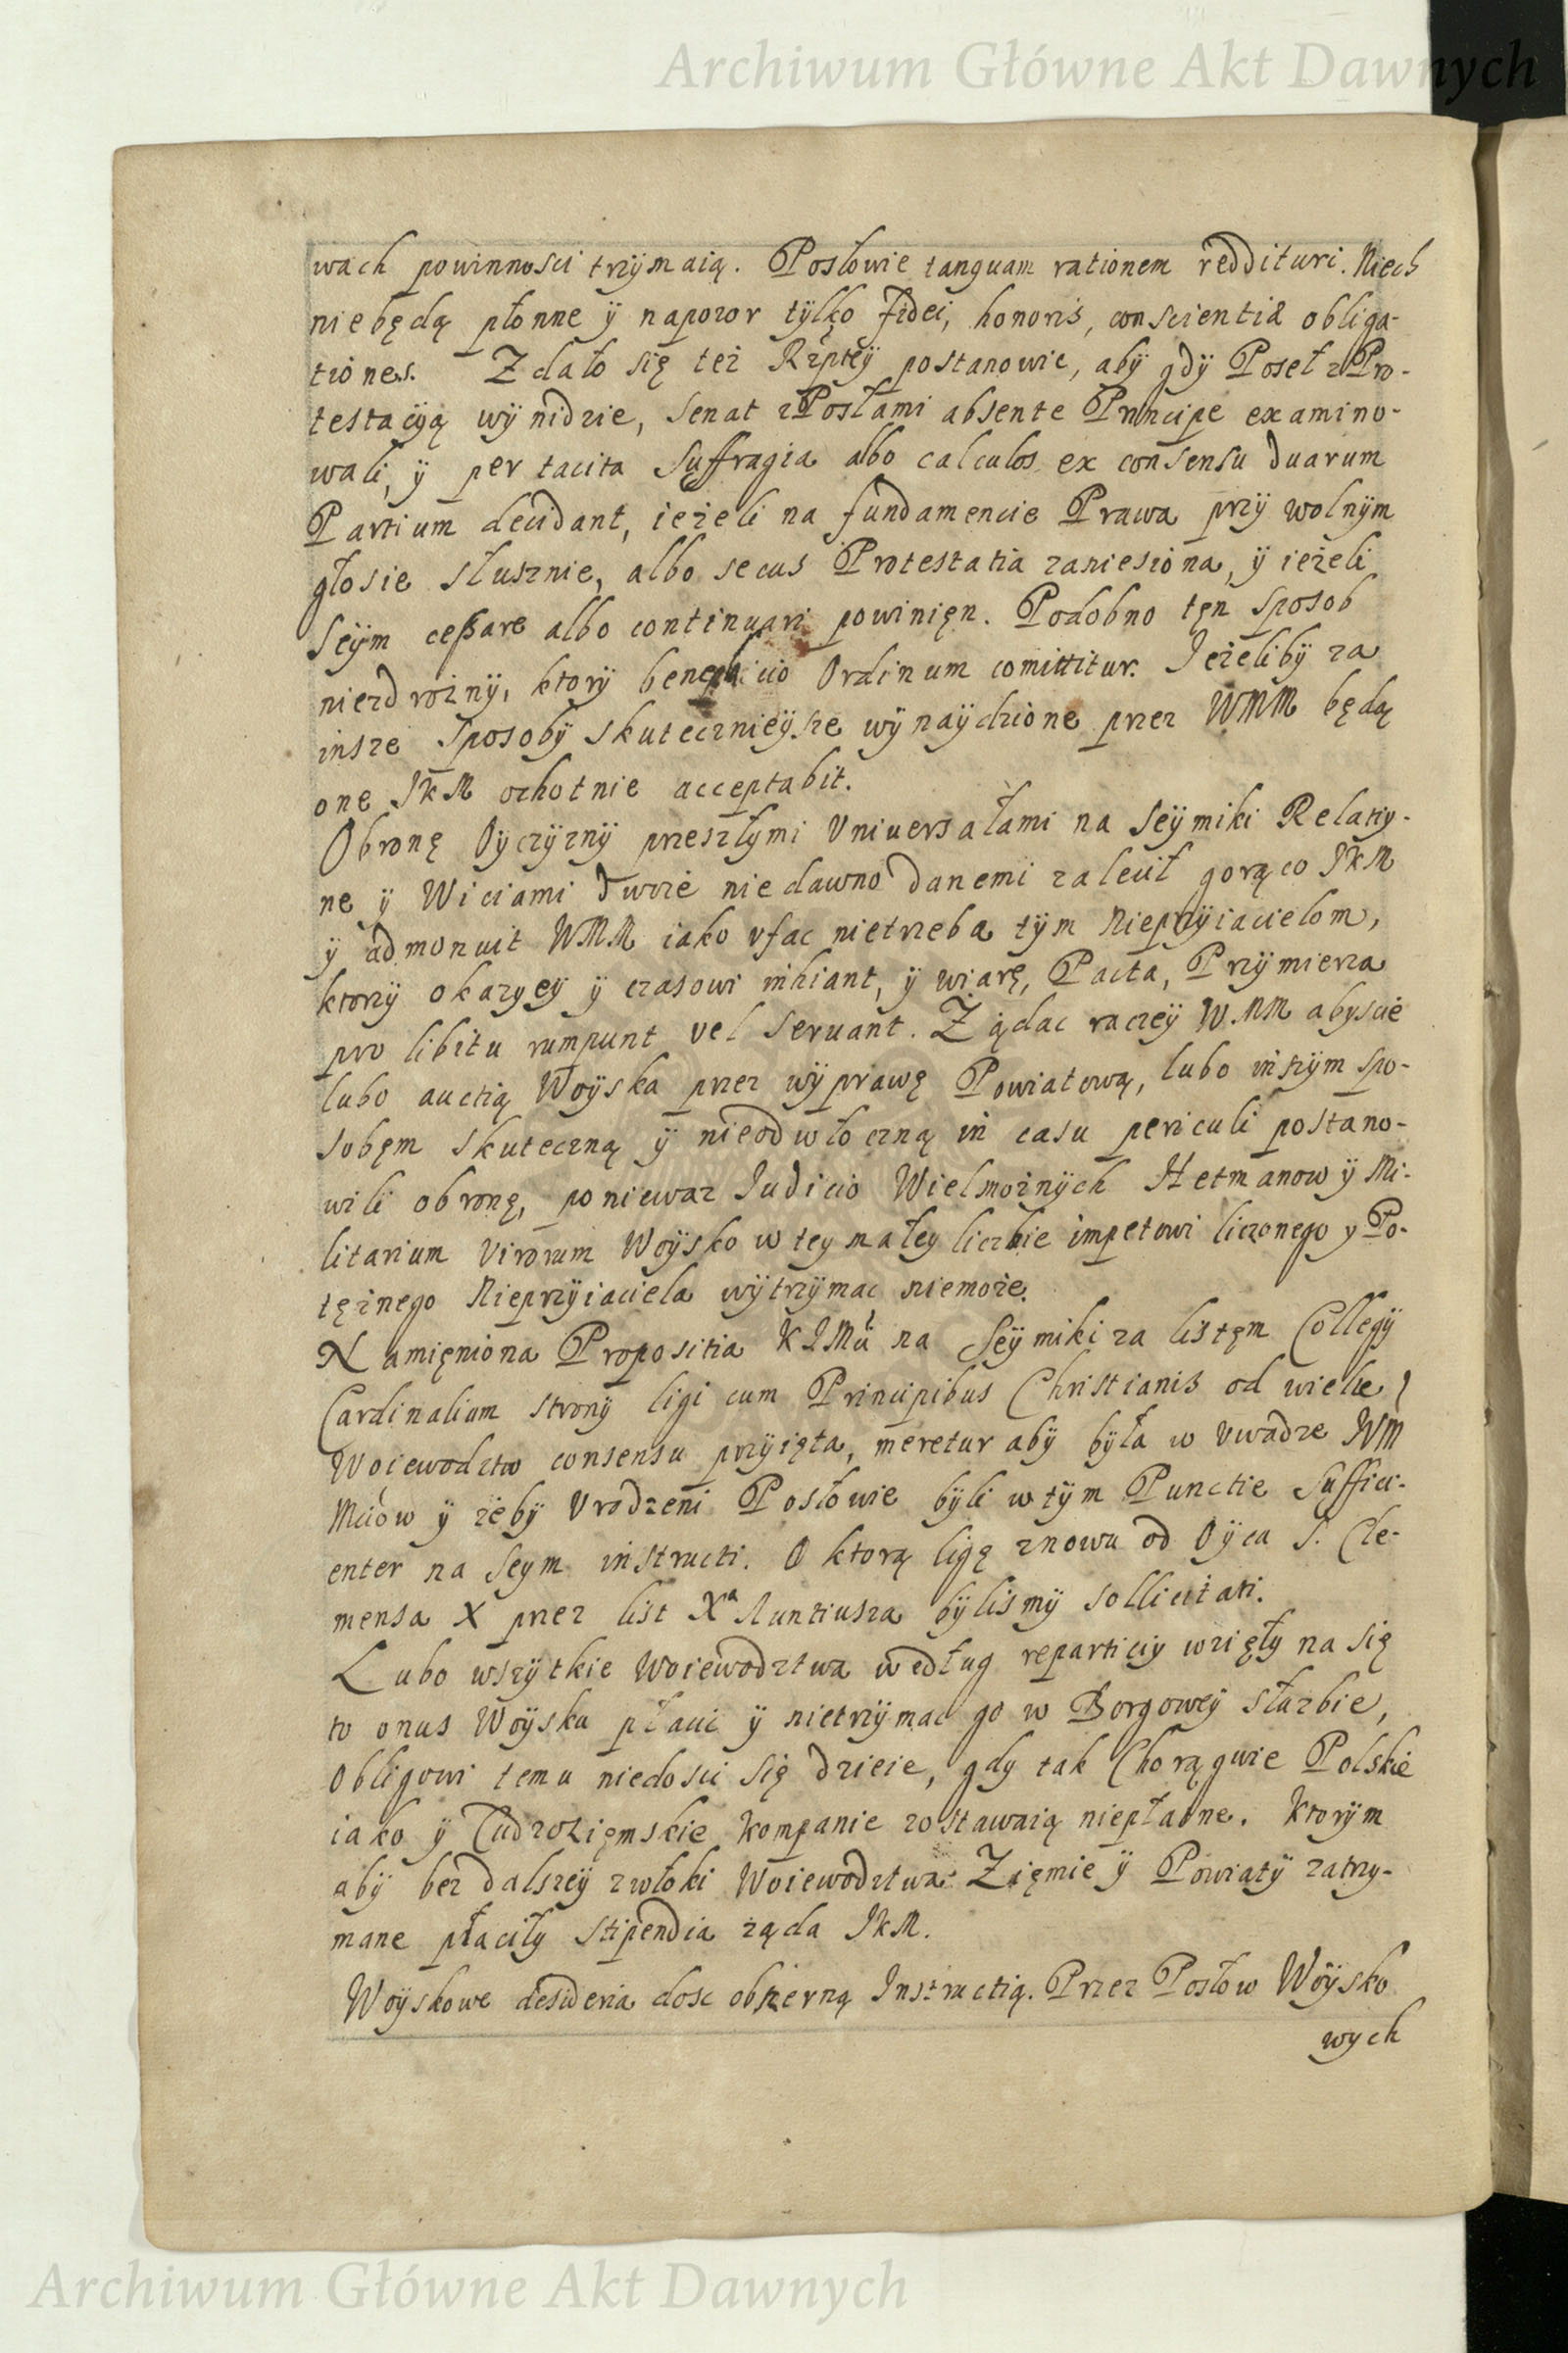 Archiwum Główne Akt Dawnych
wach powinnosci trzÿmaią. Posłowie tanquam rationem reddituri. Niech
niebędą płonne ÿ napozor tÿlko fidei, honoris, conscientiæ obliga-
tiones. Zdało się też Rzptey postanowic, abÿ gdÿ Poseł z Pro-
testacÿą wÿnidzie, Senat z Posłami absente Principe examino-
wali, ÿ per tacita Suffragia albo calculos ex consensu duarum
Partium decidant, ieżeli na fundamencie Prawa przÿ wolnÿm
głosie słusznie, albo secus Protestatia zaniesiona, ÿ ieżeli
Seÿm ceßare albo continuari powinięn. Podobno tęn sposob
niezdrożnÿ, ktorÿ beneplicio Ordinum comittitur. Ieżelibÿ za
insze sposobÿ skutecznieÿsze wÿnaÿdzione przez WMM będą
one JKM ochotnie acceptabit.
Obronę Oyczÿznÿ przeszłymi Vniuersałami na Seÿmiki Relatÿ-
ne ÿ Wiciami dwoie niedawno danemi zalecił gorąco JKM
ÿ admonuit WMM iako vfac nietrzeba tÿm Nieprzÿiacielom,
ktorzÿ okazyeÿ ÿ czasowi inhiant, ÿ wiarę, Pacta, Przÿmierza
pro libitu rumpunt vel seruant. Żądac raczeÿ WMM abyscie
lubo auctią Woÿska przez wÿprawę Powiatową, lubo inszÿm spo-
sobęm skuteczną ÿ nieodwłoczną in casu periculi postano-
wili obronę, poniewaz Iudicio Wielmożnÿch Hetmanow ÿ Mi-
litarium virorum Woÿsko w tey małey liczbie impetowi liczonego y Po-
tężnego Nieprzÿiaciela wÿtrzÿmac niemoże.
Namięniona Propositia KIMci na Seÿmiki za listęm Collegÿ
Cardinalium stronÿ ligi cum Principibus Christianis od wielu
Woiewodztw consensu przÿięta, meretur abÿ bÿła w vwadze WM
Mciow ÿ żebÿ Vrodzeni Posłowie bÿli w tÿm Punctie suffici-
enter na Seym instructi. O ktorą ligę znowu od Oÿca S. Cle-
mensa X przez list Xa Nuntiusza bÿlismÿ sollicitati.
Lubo wszÿtkie Woiewodztwa według reparticiy wzięłÿ na się
to onus Woÿsku płacic ÿ nietrzÿmac go w Borgoweÿ słuzbie,
Obligowi temu niedosci się dzieie, gdy tak Chorągwie Polskie
iako ÿ Cudzozięmskie Kompanie zostawaią niepłatne. Ktorÿm
abÿ bez dalszeÿ zwłoki Woiewodztwa Zięmie ÿ Powiatÿ zatrzy-
mane płaciłÿ stipendia żąda JKM.
Woÿskowe desideria dosc obszerną Instructią. Przez Posłow Woÿsko
wych
Archiwum Główne Akt Dawnych